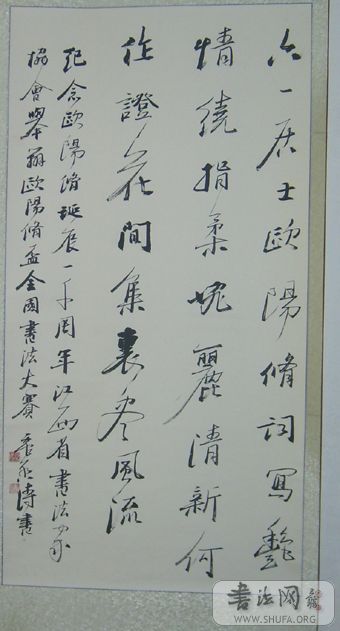 六一居士歐陽脩词寫艷
情绕指柔婉麗清新何
作證花間集裏盡風流
紀念歐陽脩誕辰一千周年江西省書法家
協會舉辦歐陽脩盃全國書法大賽 書
書法网
WWW.SHUFA.ORG